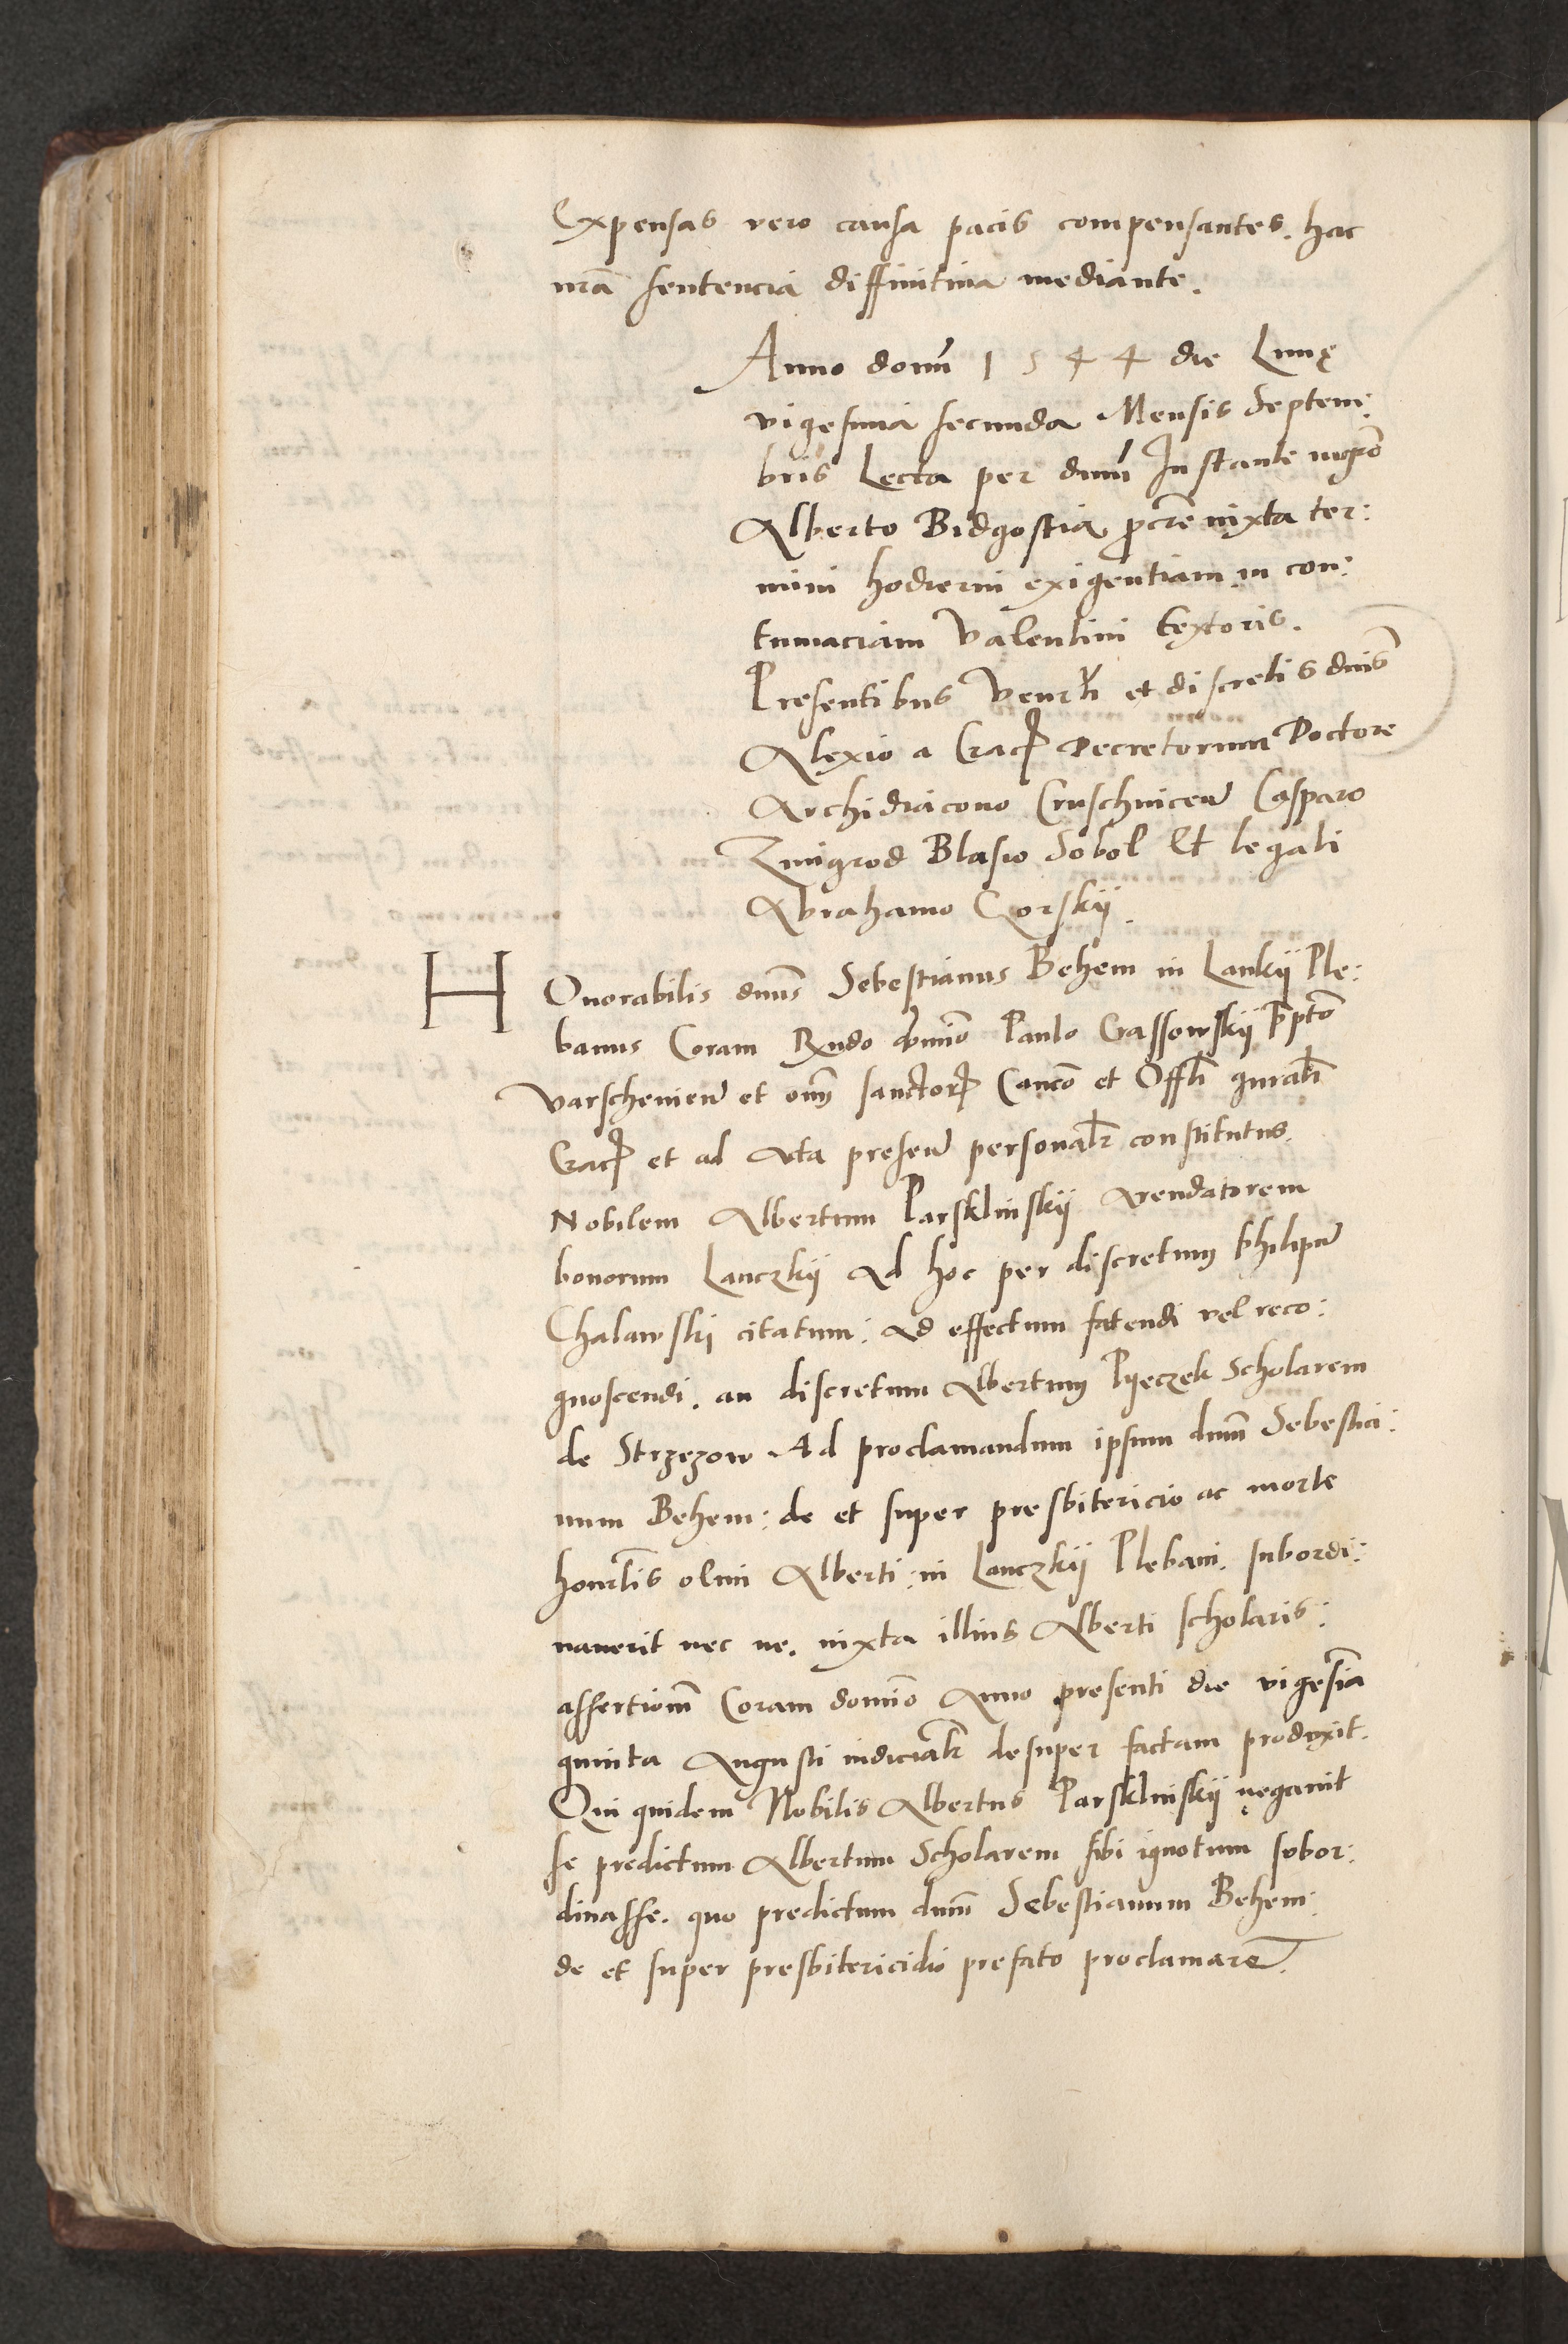 Expensas vero causa pacis compensantes. hac
nrã sentencia diffinitiva mediante.
Anno domĩ 1544 die Lunę
vigesima secunda Mensis Septem:
bris Lecta per dnum Instante mgrõ
Alberto Bidgostia p̃crẽ iuxta ter:
mini hodierni exigentiam in con:
tumaciam Valentini textoris.
Presentibus Venerlĩ et discretis dnis
Alexio a Crac Decretorum Doctore
Archidiacono Cruschvicen Casparo
Zmigrod Blasio Sobol Et legali
Abrahamo Gorskij.
HOnorabilis dnus Sebestianus Behem in Lankij Ple:
banus Coram Rndo domino Paulo Gassowskij
Varschevien et om̃ sanctor Canco et Offlĩ gnralĩ
Crac et ad Acta presen personalr constitutus.
Nobilem Albertum Parsklinskij Arendatorem
bonorum Lanczkij Ad hoc per discretum Philipũ
Chalawski citatum: Ad effectum fatendi vel reco:
gnoscendi. an discretum Albertum Pyeczek Scholarem
de Strzezow Ad proclamandum ipsum dnum Sebestia:
num Behem: de et super presbitericio ac morte
honorlis olim Alberti: in Lanczkij Plebani. subordi:
naverit nec ne. iuxta illius Alberti scholaris:
assertionem Coram domino Anno presenti die vigesima
quinta Augusti iudicialr desuper factam produxit.
Qui quidem Nobilis Albertus Parsklinskij nęgavit
se predictum Albertum Scholarem sibi ignotum subor:
dinasse. quo predictum dnum Sebestianum Behem:
de et super presbitericidio prefato proclamaret.